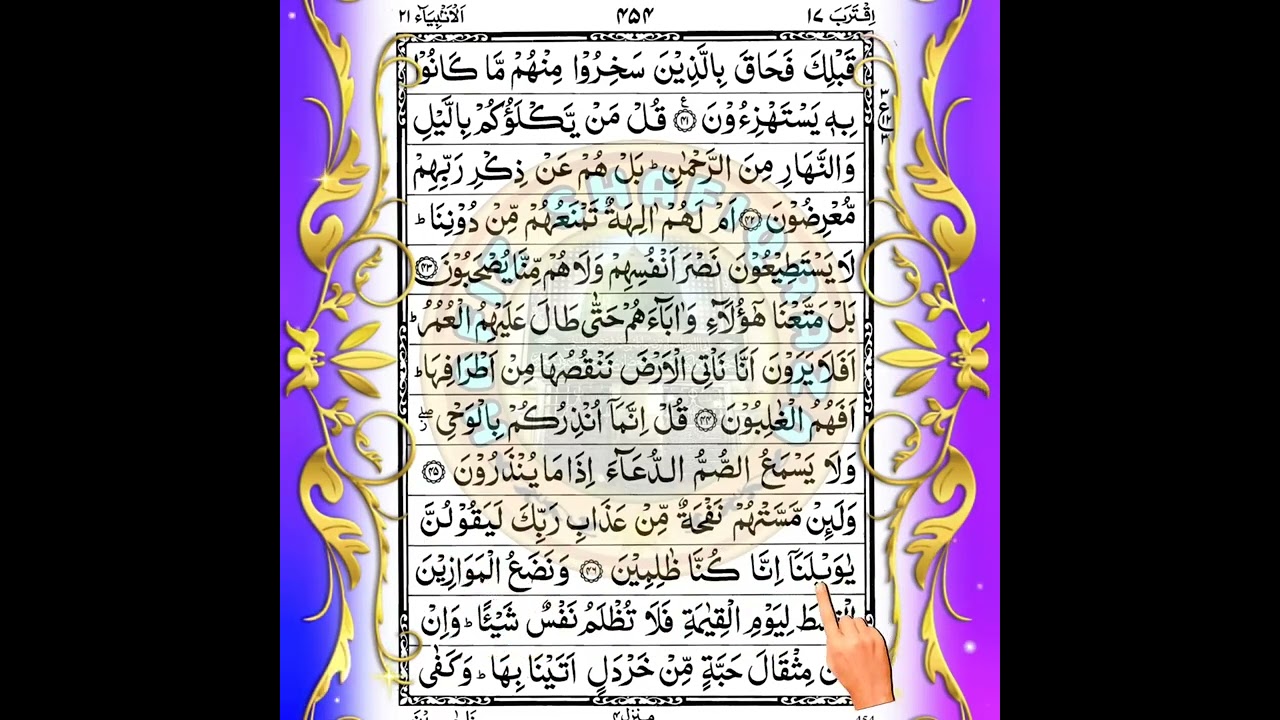 اِقْتَرَبَ ١٧ ٤٥٤ اَلْاَنْبِيَآء ٢١
قَبْلِكَ فَحَاقَ بِالَّذِيْنَ سَخِرُوْا مِنْهُمْ مَّا كَانُوْا
بِهٖ يَسْتَهْزِءُوْنَ ۝٤١ ع قُلْ مَنْ يَّكْلَؤُكُمْ بِالَّيْلِ
وَالنَّهَارِ مِنَ الرَّحْمٰنِ ؕ بَلْ هُمْ عَنْ ذِكْرِ رَبِّهِمْ
مُّعْرِضُوْنَ ۝٤٢ اَمْ لَهُمْ اٰلِهَةٌ تَمْنَعُهُمْ مِّنْ دُوْنِنَا ؕ
لَا يَسْتَطِيْعُوْنَ نَصْرَ اَنْفُسِهِمْ وَلَا هُمْ مِّنَّا يُصْحَبُوْنَ ۝٤٣
بَلْ مَتَّعْنَا هٰٓؤُلَآءِ وَاٰبَآءَهُمْ حَتّٰى طَالَ عَلَيْهِمُ الْعُمُرُ ؕ
اَفَلَا يَرَوْنَ اَنَّا نَاْتِى الْاَرْضَ نَنْقُصُهَا مِنْ اَطْرَافِهَا ؕ
اَفَهُمُ الْغٰلِبُوْنَ ۝٤٤ قُلْ اِنَّمَآ اُنْذِرُكُمْ بِالْوَحْىِ ۖ
وَلَا يَسْمَعُ الصُّمُّ الدُّعَآءَ اِذَا مَا يُنْذَرُوْنَ ۝٤٥
وَلَئِنْ مَّسَّتْهُمْ نَفْحَةٌ مِّنْ عَذَابِ رَبِّكَ لَيَقُوْلُنَّ
يٰوَيْلَنَآ اِنَّا كُنَّا ظٰلِمِيْنَ ۝٤٦ وَنَضَعُ الْمَوَازِيْنَ
لِيَوْمِ الْقِيٰمَةِ فَلَا تُظْلَمُ نَفْسٌ شَيْـًٔا ؕ وَاِنْ
مِثْقَالَ حَبَّةٍ مِّنْ خَرْدَلٍ اَتَيْنَا بِهَا ؕ وَكَفٰى